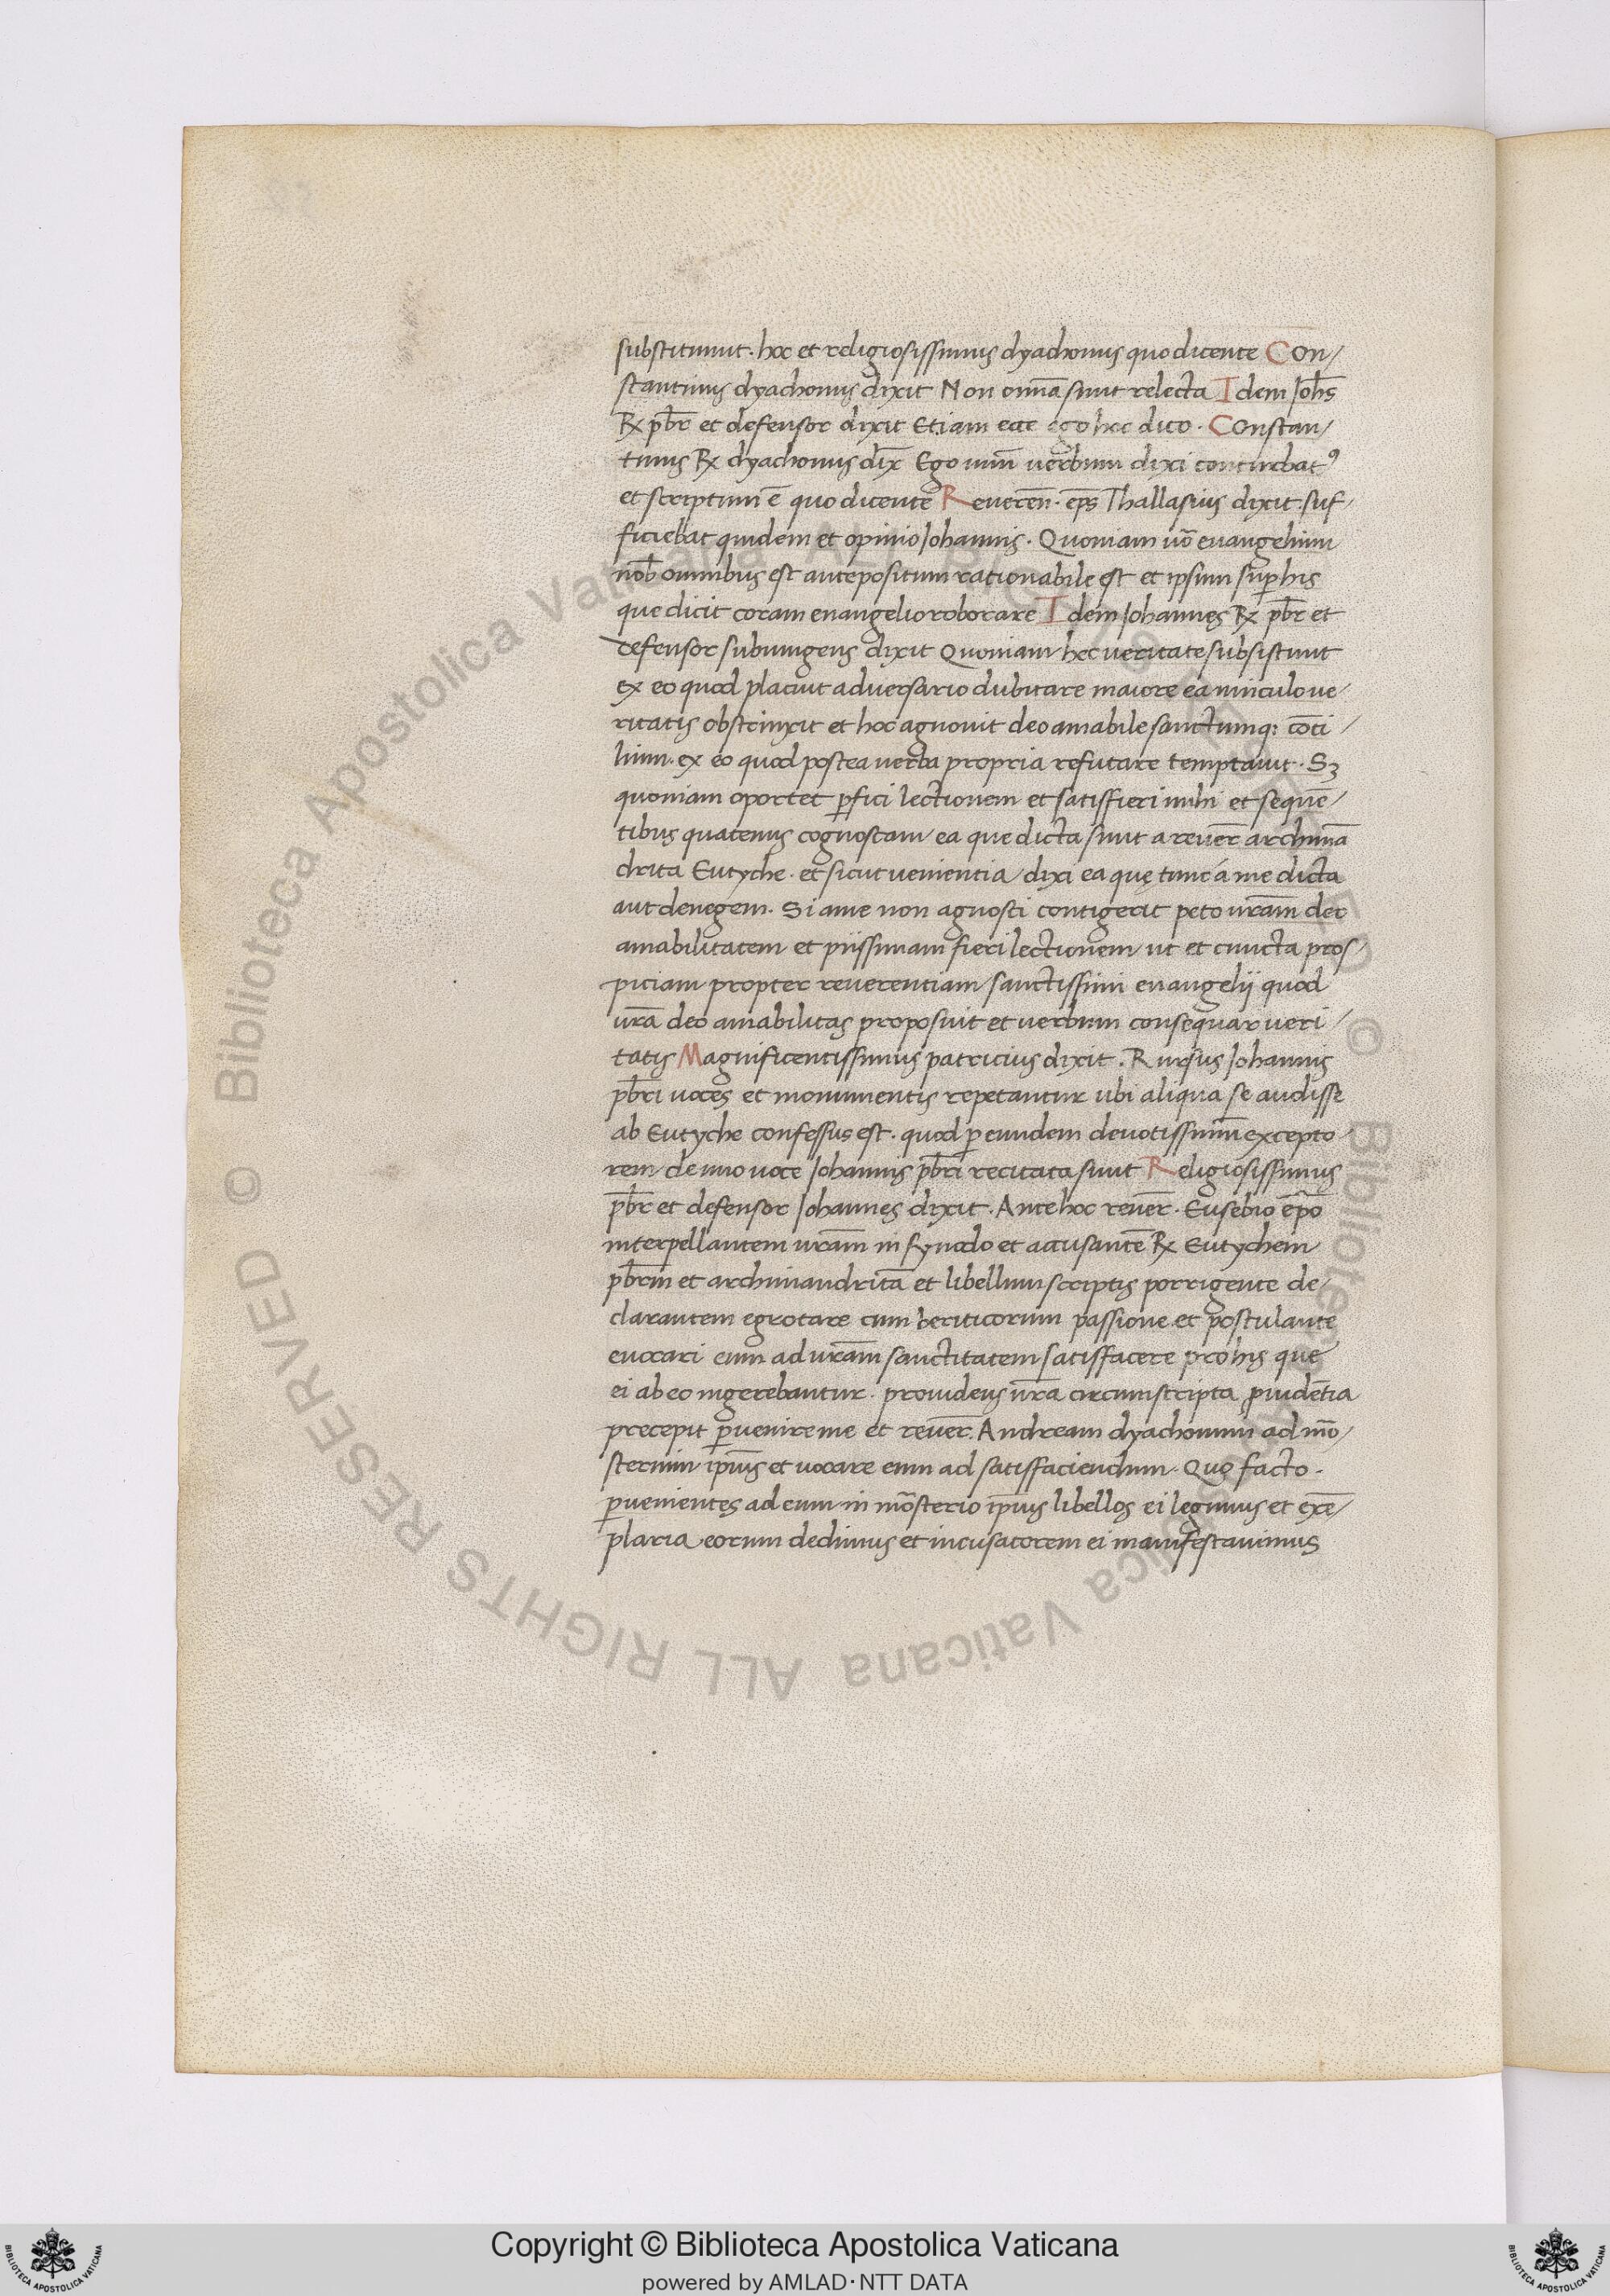 substitimut. hoc et religiosissimus dyachonus quo dicente Con/
stantinus dyachonus dixit Non om̄a sunt relecta Idem Joh̄s
℞ pb̄r et defensor dixit Etiam eae ego hoc dico. Constan/
tinus ℞ dyachonus dix̄ Ego unū verbum dixi conturbatꝰ
et scriptum ē quo dicente Reveren̄. ep̄s Thallasius dixit. suf/
ficiebat quidem et opinio Johannis. Quoniam uō euangelium
nob̄ omnibus est antepositum rationabile est et ipsum suꝑ his
que dicit coram euangelio roborare Idem Johannes ℞ pb̄r et
defensor subiungens dixit Quoniam hec ueritate subsistunt
ex eo quod placuit adversario dubitare maiore ea uinculo ue/
ritatis obstrinxit et hoc agnouit deo amabile sanctumq; cōci/
lium. ex eo quod postea uerba propria refutare temptauit. Sꝫ
quoniam oportet ꝑfici lectionem et satisfieri mihi et sequē/
tibus quatenus cognoscam ea que dicta sunt a reuer̄ archimā
drita Eutyche. et sicut uenientia dixi ea quę tunc á me dicta
aut denegem. Si ame non agnosci contigerit peto ur̄am deo
amabilitatem et piissimam fieri lectionem ut et cuncta pros/
piciam propter reuerentiam sanctissimi euangelij quod
ur̄a deo amabilitas proposuit et uerbum consequar ueri/
tatis Magnificentissimus patricius dixit. Rursus Johannis
pb̄ri uoces et monumentis repetantur ubi aliqua se audisse
ab Eutyche confessus est. quod ꝑ eundem deuotissimū excepto/
rem denuo uoce Johannis pb̄ri recitata sunt Religiosissimus
pb̄r et defensor Johannes dixit. Ante hoc reuer̄. Eusebio ep̄o
interpellantem ur̄am in synodo et accusantē ℞ Eutychem
pb̄rm et archimandritā et libellum scriptis porrigente de/
clarantem egrotare eum hereticorum passione et postulante
euocari eum ad ur̄am sanctitatem satisfacere pro his que
ei ab eo ingerebantur. prouidens ur̄a circumscripta prudētia
precepit ꝑuenire me et reuer̄. Andream dyachonum ad mō/
sterium ip̄ius et uocare eum ad satisfaciendum. Quo facto.
ꝑuenientes ad eum in mōsterio ip̄ius libellos ei legimus et exē/
plaria eorum dedimus et incusatorem ei manifestauimus
© Biblioteca Apostolica Vaticana ALL RIGHTS RESERVED
Copyright © Biblioteca Apostolica Vaticana
powered by AMLAD·NTT DATA